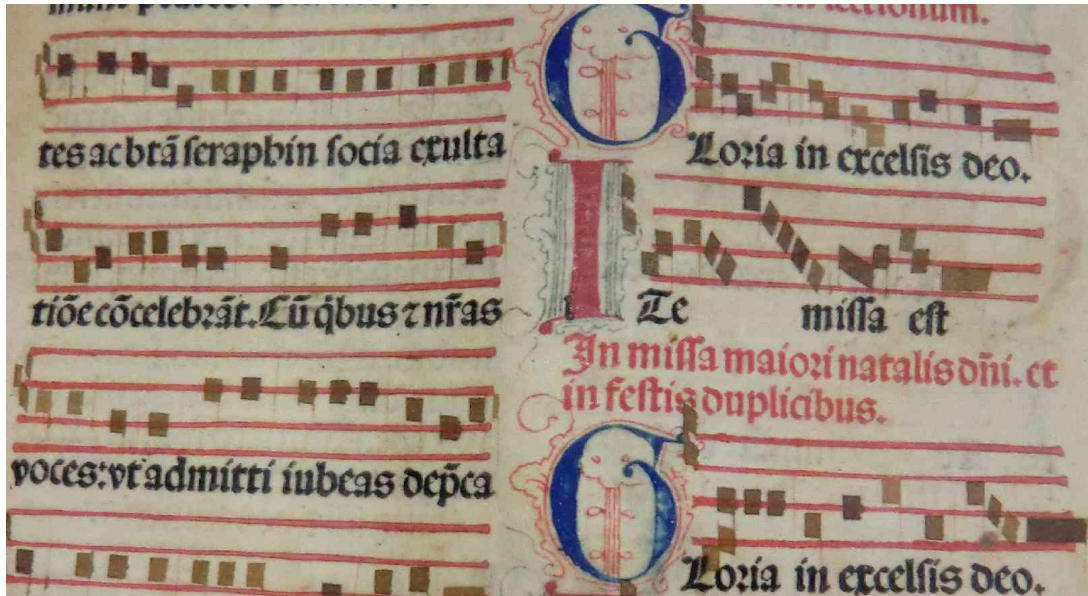 tes ac btã seraphin socia exulta
tiõe cõcelebrãt. Cũ q̃bus ⁊ nr̃as
voces: vt admitti iubeas dep̃ca
lectionum.
GLoria in excelsis deo.
ITe missa est
In missa maiori natalis dñi. et
in festis duplicibus.
GLoria in excelsis deo.